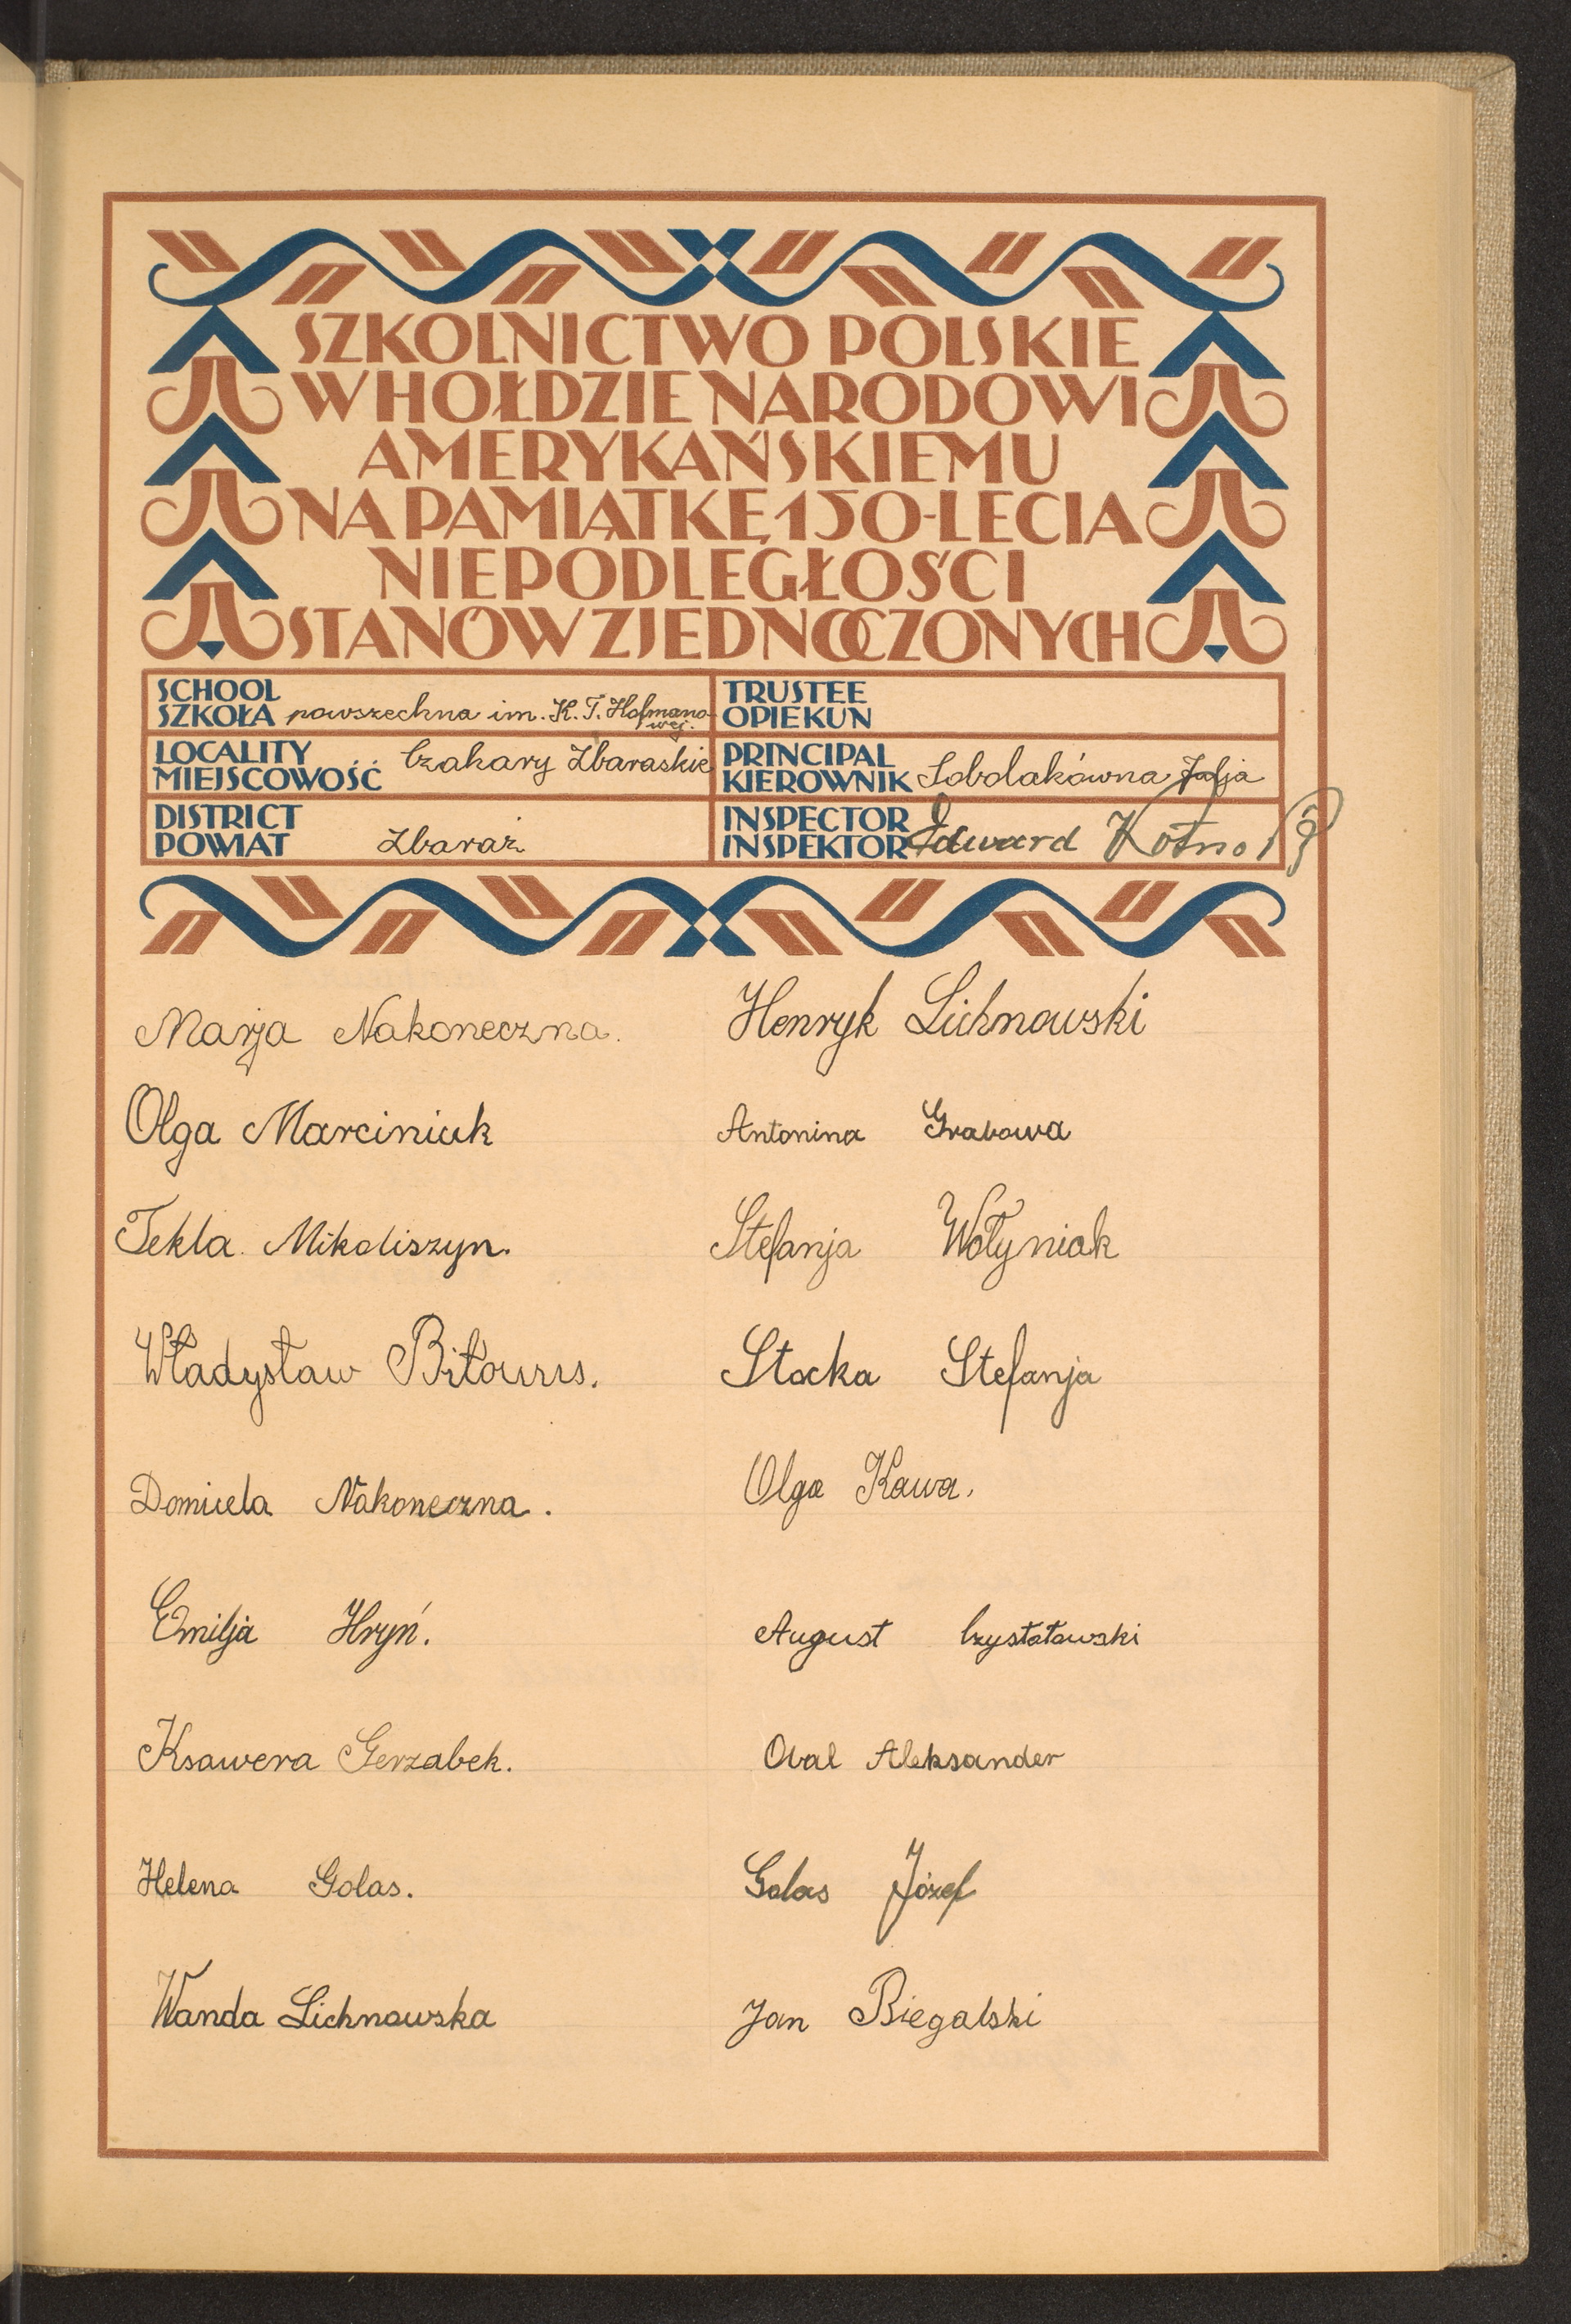 SZKOLNICTWO POLSKIE
W HOŁDZIE NARODOWI
AMERYKAŃSKIEMU
NA PAMIĄTKĘ 150-LECIA
NIEPODLEGŁOŚCI
STANÓW ZJEDNOCZONYCH
SCHOOL
SZKOŁA powszechna im. K. T. Hofmano-
wej.
TRUSTEE
OPIEKUN
LOCALITY
MIEJSCOWOŚĆ Czahary Zbaraskie
PRINCIPAL
KIEROWNIK Sobolakówna Julja
DISTRICT
POWIAT Zbaraż
INSPECTOR
INSPEKTOR Edward
Marja Nakoneczna.
Henryk Lichnowski
Olga Marciniuk
Antonina Grabowa
Tekla Mikoliszyn.
Stefanja Wołyniak
Władysław
Stocka Stefanja
Domicela Nakoneczna.
Olga Kawa.
Emilja Hryń.
August Czystołowski
Ksawera Gerzabek.
Owal Aleksander
Helena Golas.
Golas Józef
Wanda Lichnowska
Jan Biegalski